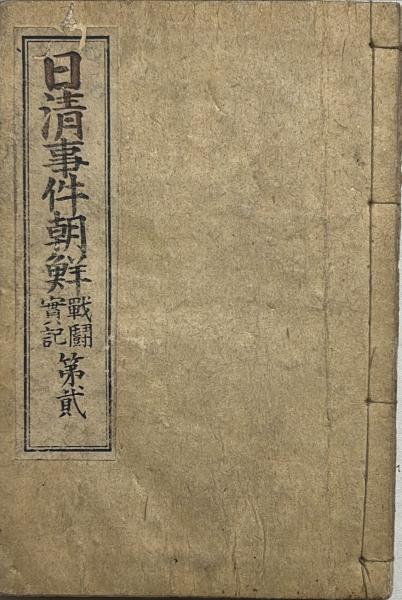 日清事件朝鮮
戰鬪
實記
第貳